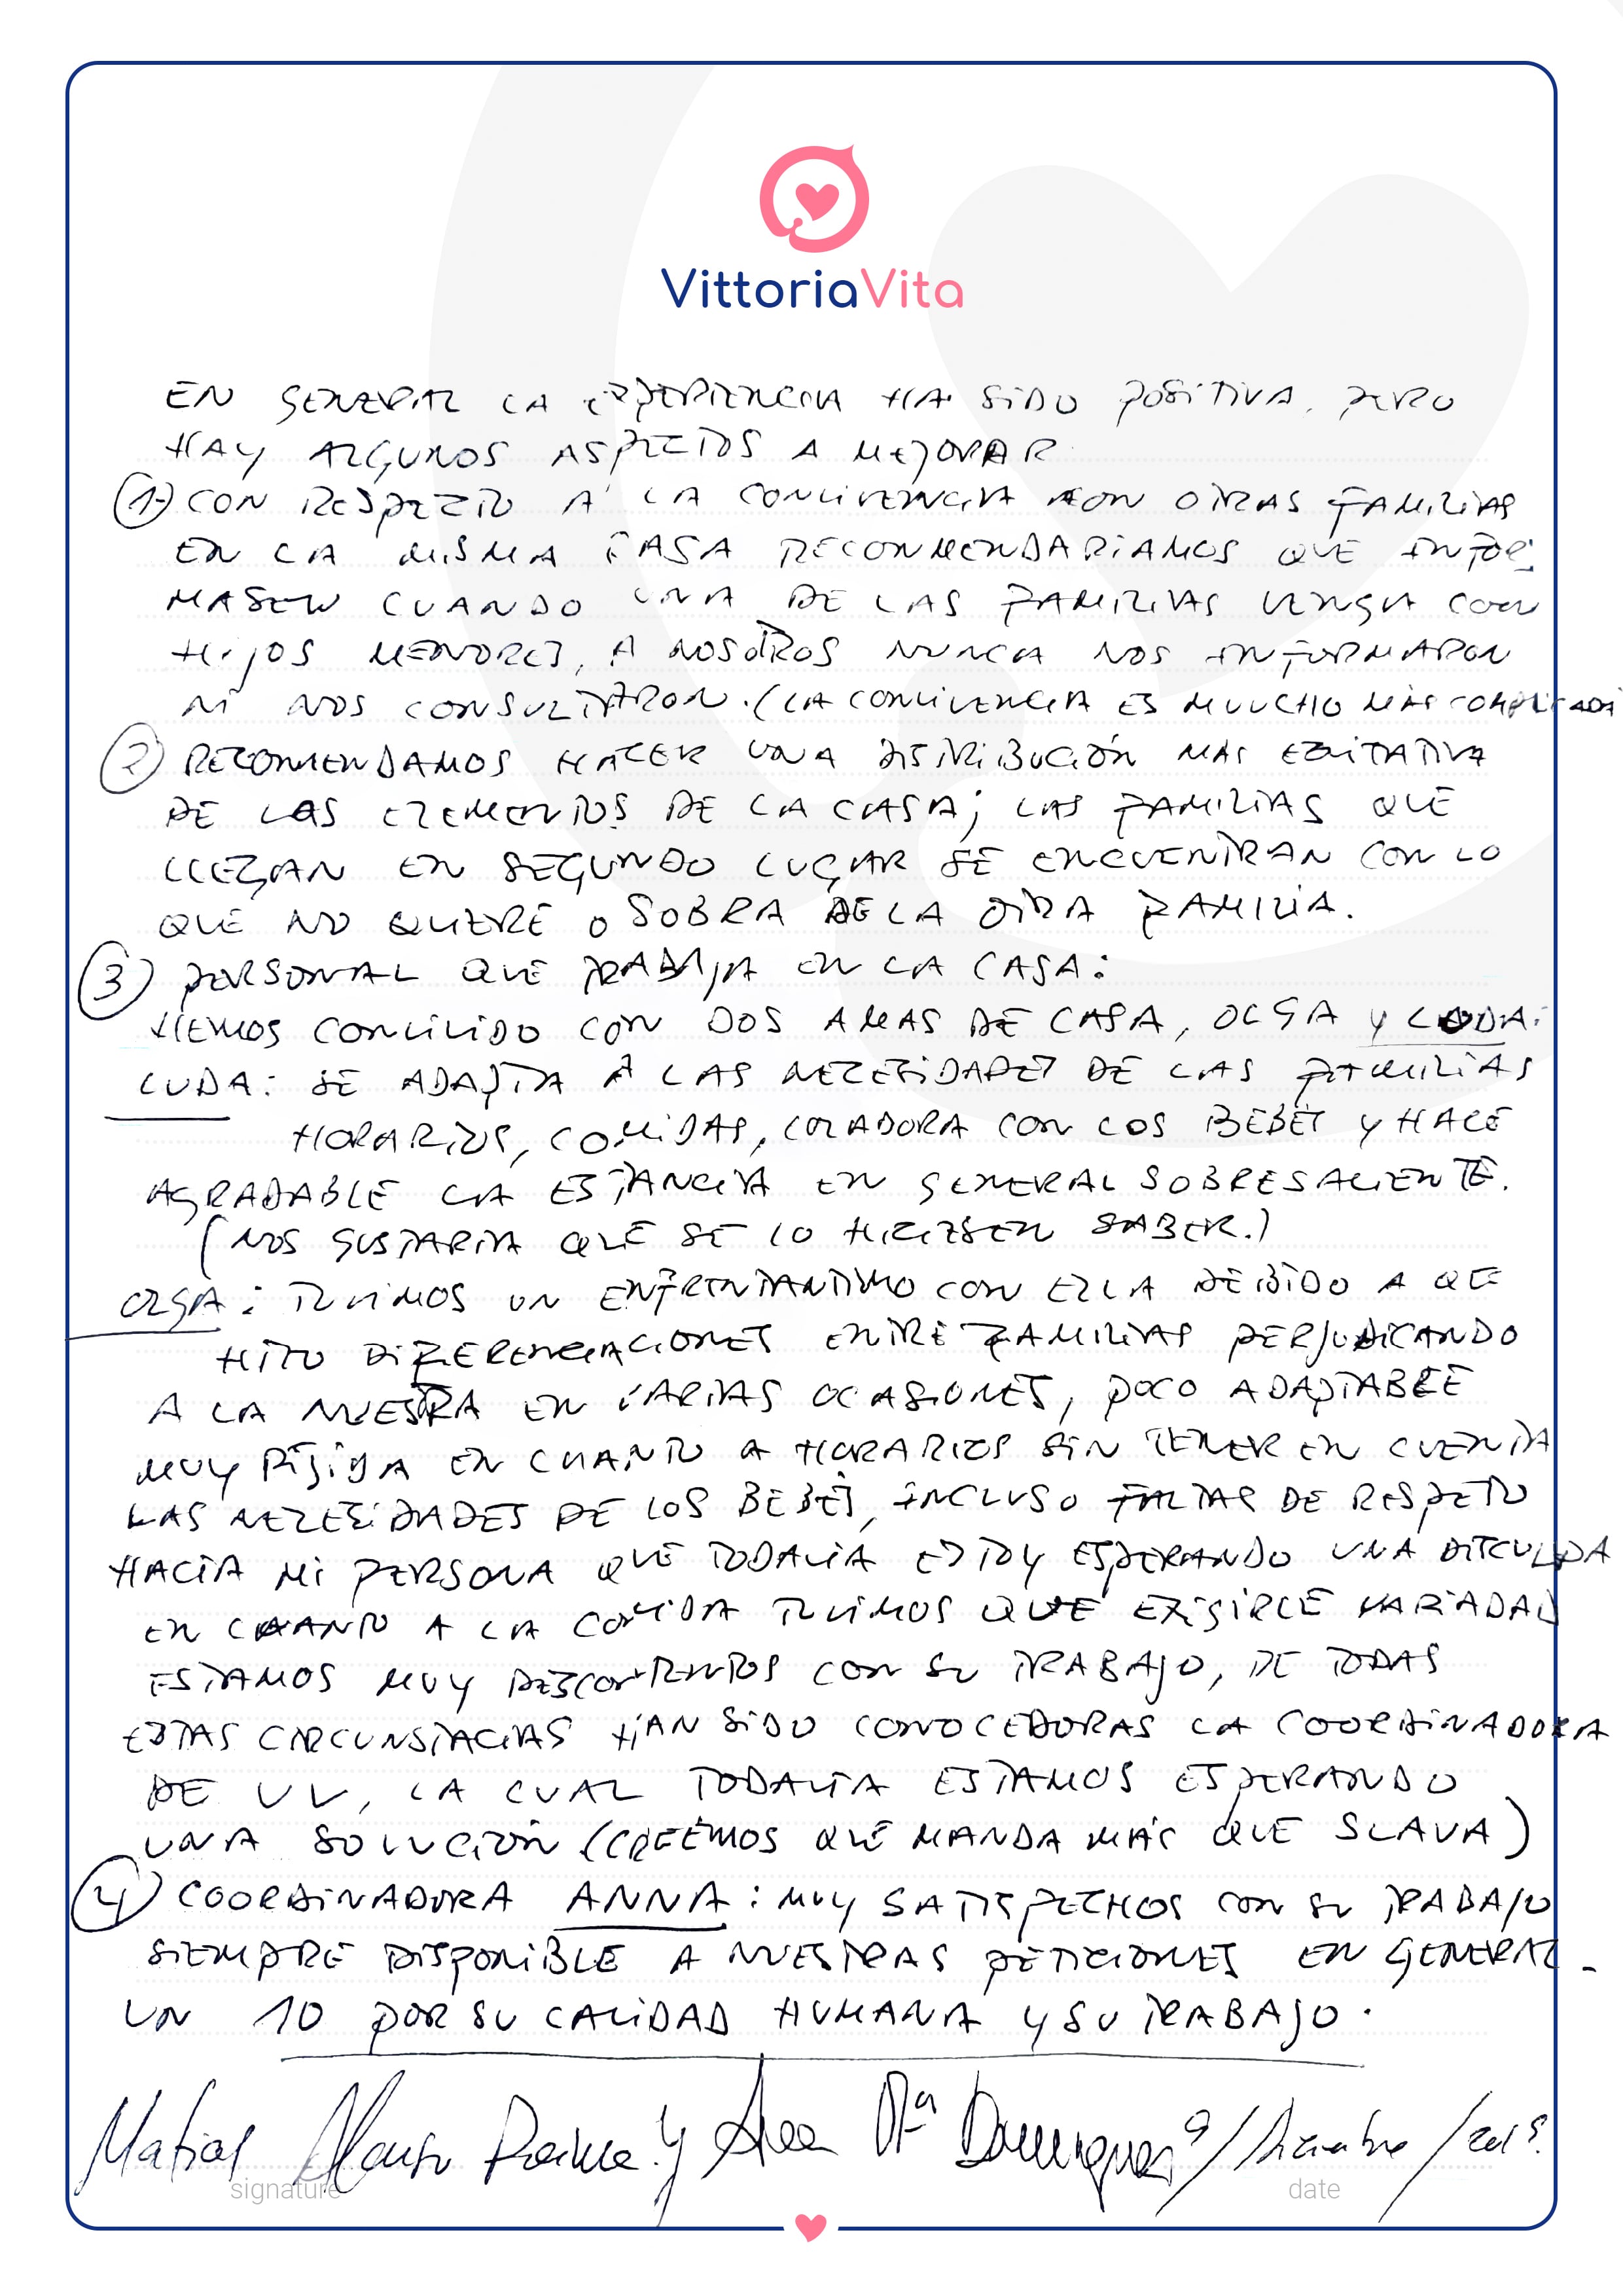 VittoriaVita
EN GENERAL LA EXPERIENCIA HA SIDO POSITIVA, PERO
HAY ALGUNOS ASPECTOS A MEJORAR
1-) CON RESPECTO A LA CONVIVENCIA CON OTRAS FAMILIAS
EN LA MISMA CASA RECONMENDARIAMOS QUE INFOR-
MASEN CUANDO UNA DE LAS FAMILIAS VENGA CON
HIJOS MENORES, A NOSOTROS NUNCA NOS INFORMARON
NI NOS CONSULTARON. (LA CONVIVENCIA ES MUUCHO MÁS COMPLICADA
2) RECONMENDAMOS HACER UNA DISTRIBUCIÓN MAS EQUITATIVA
DE LOS ELEMENTOS DE LA CASA; LAS FAMILIAS QUE
LLEGAN EN SEGUNDO LUGAR SE ENCUENTRAN CON LO
QUE NO QUIERE O SOBRA DE LA OTRA FAMILIA.
3) PERSONAL QUE TRABAJA EN LA CASA:
HEMOS CONVIVIDO CON DOS AMAS DE CASA, OLGA Y LUDA:
LUDA: SE ADAPTA A LAS NECESIDADES DE LAS FAMILIAS
HORARIOS, COMIDAS, COLADORA CON LOS BEBÉS Y HACE
AGRADABLE LA ESTANCIA EN GENERAL SOBRESALIENTE.
(NOS GUSTARIA QUE SE LO HICIESEN SABER.)
OLGA: TUVIMOS UN ENFRENTAMTIMO CON ELLA DEBIDO A QE
HIZO DIFERENCIACIONES ENTRE FAMILIAS PERJUDICANDO
A LA NUESTRA EN VARIAS OCASIONES, POCO ADAPTABLE
MUY RÍGIDA EN CUANTO A HORARIOS SIN TENER EN CUENTA
LAS NECESIDADES DE LOS BEBÉS, INCLUSO FALTAS DE RESPETO
HACIA MI PERSONA QUE TODAVIA ESTOY ESPERANDO UNA DISCULPA
EN CUANTO A LA COMIDA TUVIMOS QUE EXIGIRLE VARIADAD
ESTAMOS MUY DESCONTENTOS CON SU TRABAJO, DE TODAS
ESTAS CIRCUNSTACIAS HAN SIDO CONOCEDORAS LA COORDINADORA
DE VV, LA CUAL TODAVIA ESTAMOS ESPERANDO
UNA SOLUCIÓN (CREEMOS QUE MANDA MÁS QUE SLAVA)
4) COORDINADORA ANNA: MUY SATISFECHOS CON SU TRABAJO
SIEMPRE DISPONIBLE A NUESTRAS PETICIONES EN GENERAL-
UN 10 POR SU CALIDAD HUMANA Y SU TRABAJO.
Matias Alonso Y Mª Dominguez 9/Diciembre/2019.
signature date